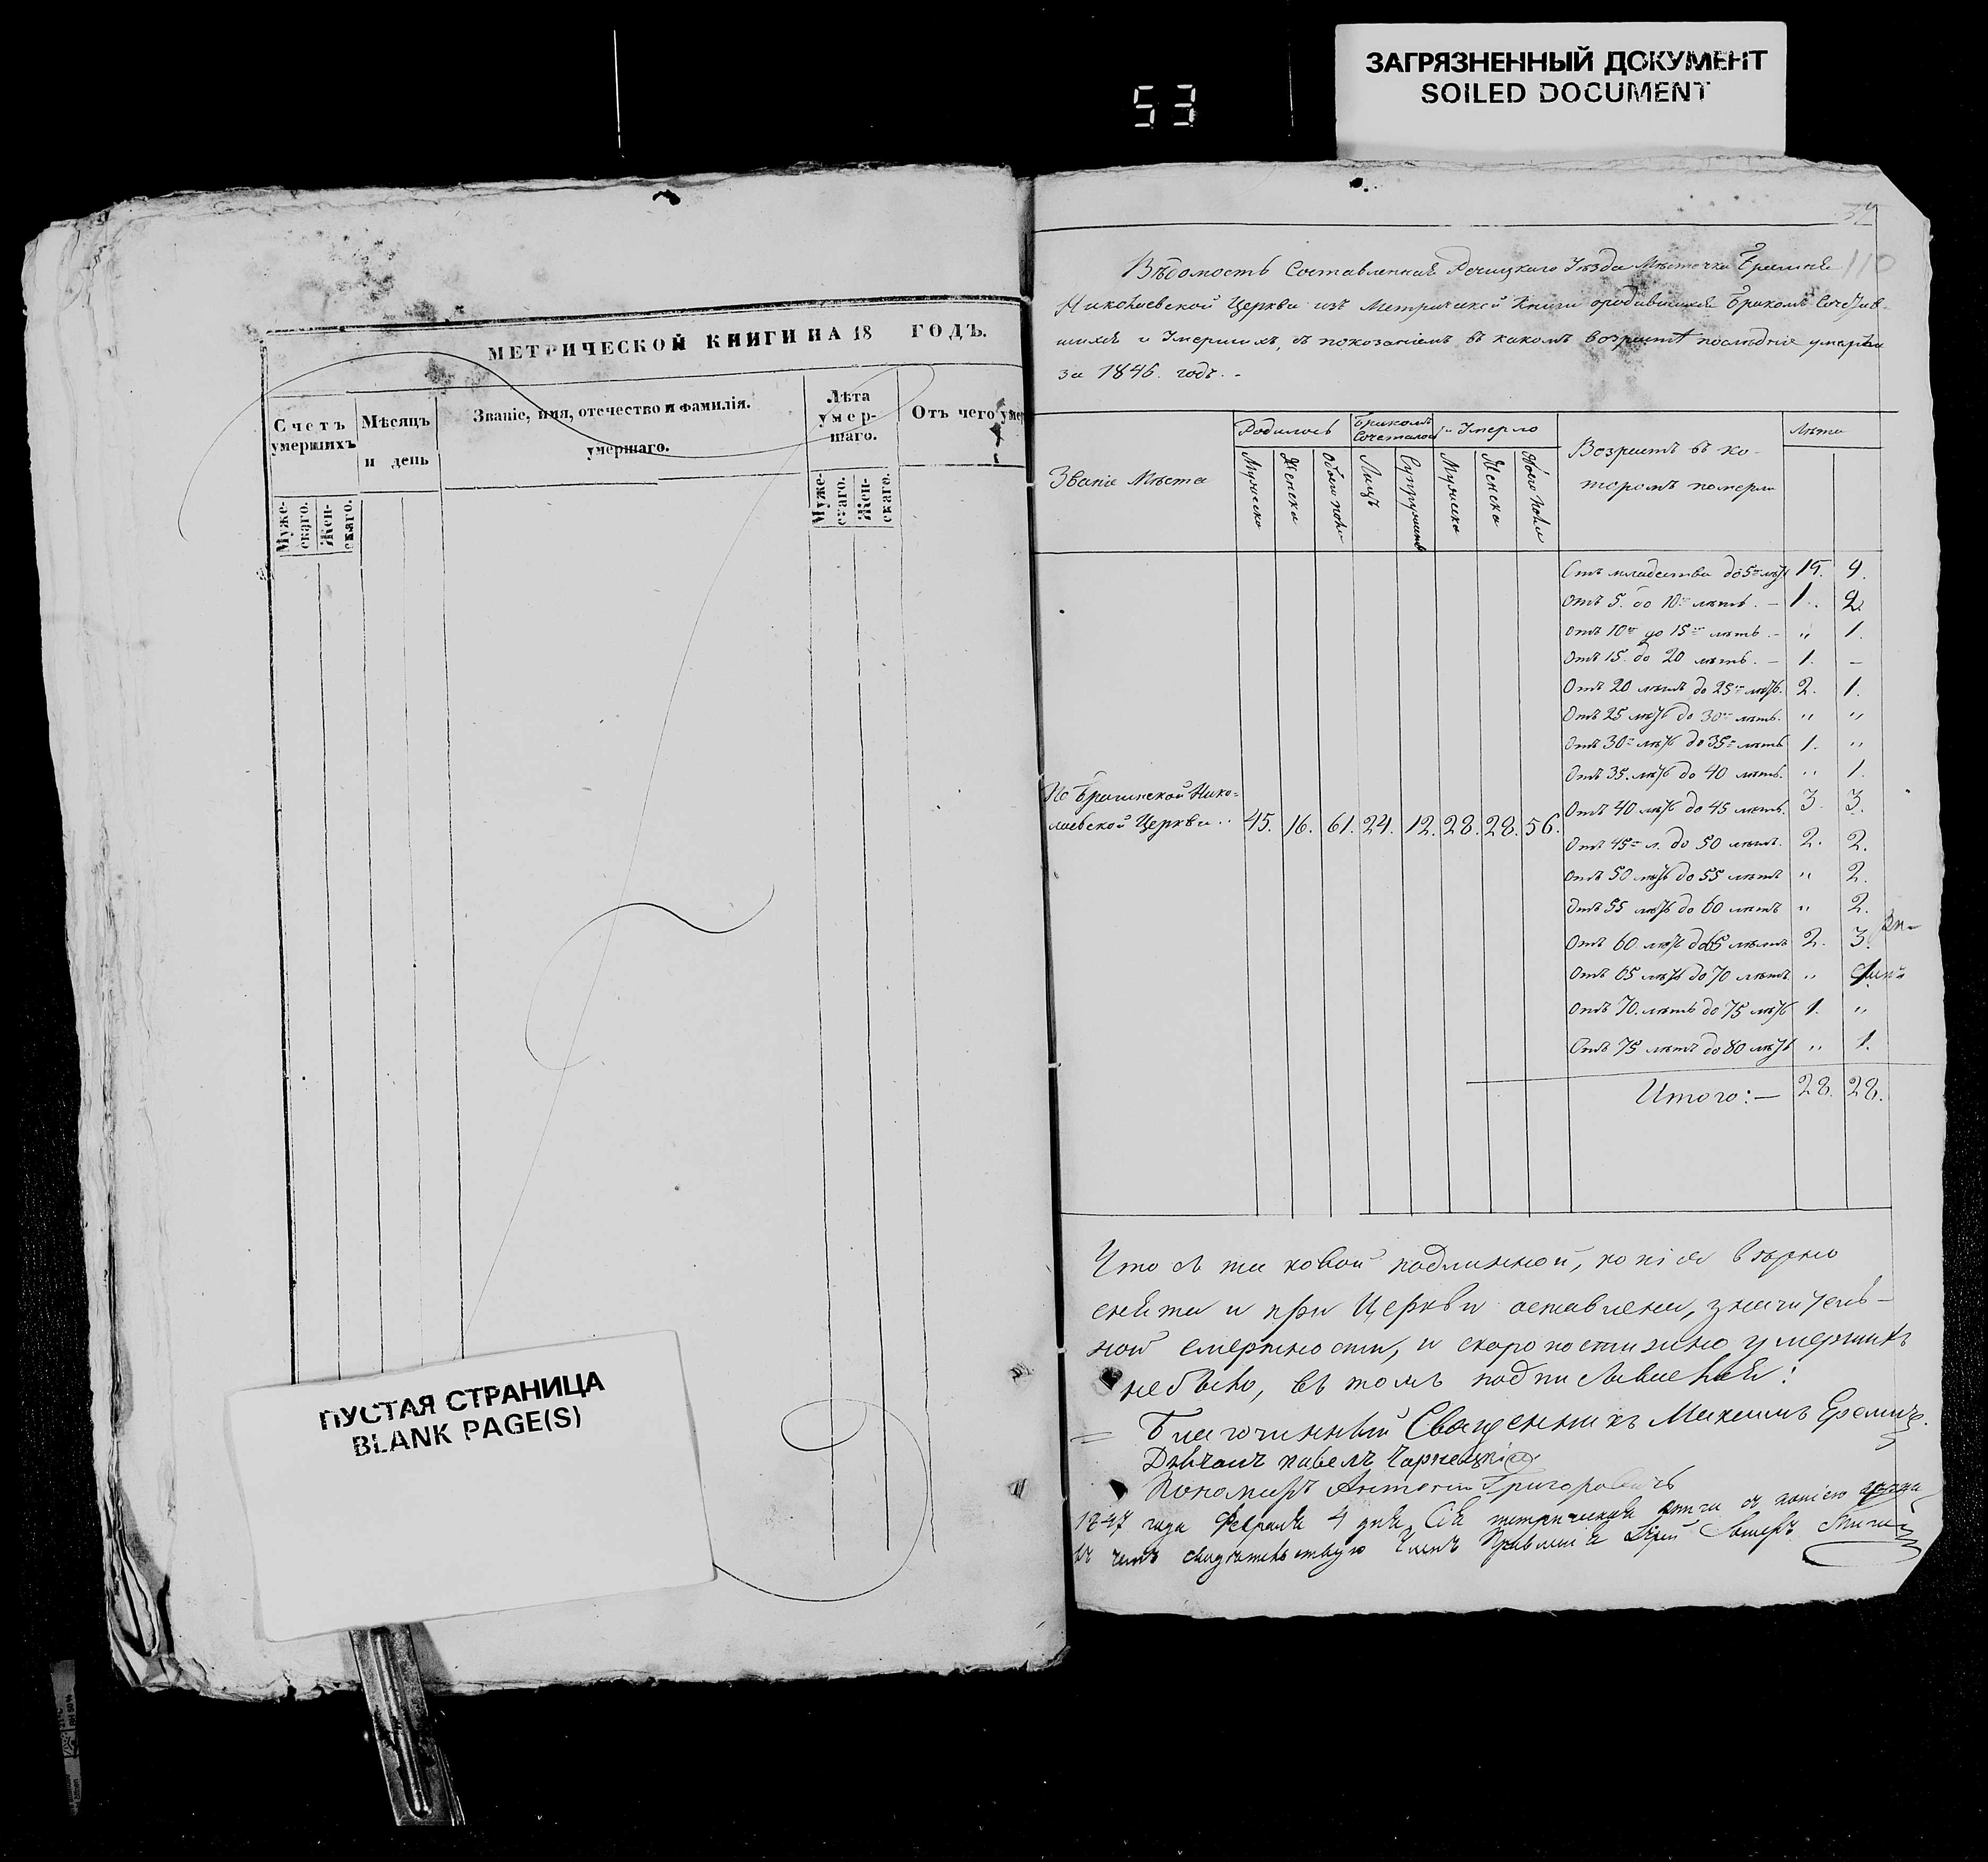 ЗАГРЯЗНЕННЫЙ ДОКУМЕНТ
SOILED DOCUMENT
53
МЕТРИЧЕСКОЙ КНИГИ НА 18 ГОДЪ.
Счетъ умершихъ
Мѣсяцъ и день
Званіе, имя, отечество и фамилія. умершаго.
Лѣта умер-шаго.
Отъ чего умер
Муже-скаго.
Жен-скаго.
Муже-скаго.
Жен-скаго.
ПУСТАЯ СТРАНИЦА
BLANK PAGE(S)
110
Вѣдомость Составленная Речицкаго Уѣзда Мѣстечка Брагиня
Николаевской Церкви изъ Метрической Книги
и Умершихъ, съ показаніемъ въ какомъ возрастѣ послѣдніе умерли
за 1846. годъ. -
Званіе Мѣста
Родилось
Бракомъ Сочеталось
Умерло
Возрастъ въ ко-
торомъ померли
Лѣта
Мужеска
Женска
Обоего пола
Лицъ
Супружествъ
Мужеска
Женска
Обоего пола
По Брагинской Нико-
лаевской Церкви .. 45. 16. 61. 24. 12. 28. 28. 56.
Отъ младенства до 5 лѣтъ 15. 9.
Отъ 5. до 10 лѣтъ. - 1. 2.
Отъ 10 до 15 лѣтъ - " 1.
Отъ 15. до 20 лѣтъ. - 1. -
Отъ 20 лѣтъ до 25 лѣтъ. 2. 1.
Отъ 25 лѣтъ до 30 лѣтъ. " "
Отъ 30 лѣтъ до 35 лѣтъ 1. "
Отъ 35. лѣтъ до 40 лѣтъ. " 1.
Отъ 40 лѣтъ до 45 лѣтъ. 3. 3.
Отъ 45 л. до 50 лѣтъ. 2. 2.
Отъ 50 лѣтъ до 55 лѣтъ " 2.
Отъ 55 лѣтъ до 60 лѣтъ " 2.
Отъ 60. лѣтъ до 65 лѣтъ 2. 3.
Отъ 65 лѣтъ до 70 лѣтъ "
Отъ 70. лѣтъ до 75 лѣтъ 1. "
Отъ 75 лѣтъ до 80 лѣтъ " 1.
Итого: - 28. 28.
Что съ таковой подлинной, копія вѣрно
снята и при Церкви оставлена, значитель-
ной смертности, и скоропостижно умершихъ
небыло, въ томъ подписываемся:
Благочинный Священникъ Максимъ Еремичъ.
Дьячокъ Павелъ Чарнецкій
Пономарь Антоній Григоровичъ
1847 года Февраля 4 дня, Сія метрическая книга съ копіею
въ чемъ свидѣтельствую Членъ Правленія Іерей